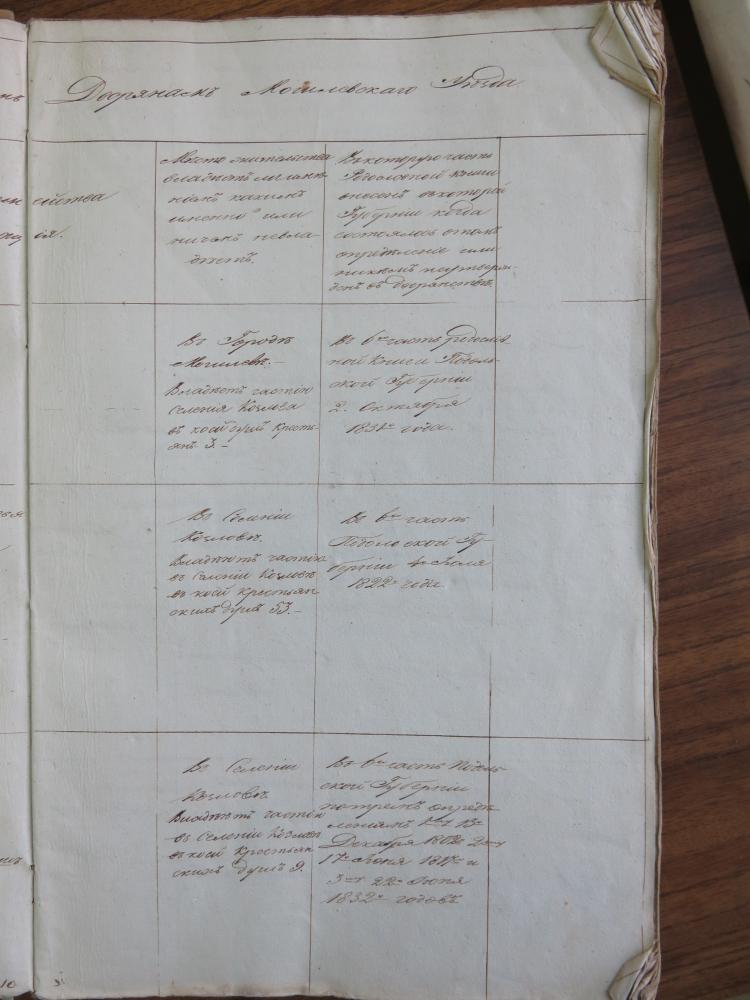 Дворянамъ Могилевскаго Уѣзда
Мѣсто жительства
владѣетъ ли имѣ-
ніемъ какимъ
именно или
ничемъ невла-
дѣетъ.
Въ которую часть
Родословной книги
внесенъ въ которой
Губерніи когда
состоялось о томъ
опредѣленіе или
дѣнъ въ дворянствѣ.
Въ Городѣ
Могилевѣ.—
Владѣетъ частію
Селенія Козлова
въ коей душъ кресть-
янъ 3.—
Въ 6ю часть родослов-
ной Книги Подоль-
ской Губерніи
2. Октября
года.
Въ Селеніи
Козловѣ.
Владѣетъ частію
въ Селеніи Козловѣ
въ коей крестьян
скихъ душъ 53.—
Въ 6ю часть
Подольской Гу-
берніи Іюля
1822го года
Въ Селеніи
Козловѣ
Владѣетъ частію
въ Селеніи Козловѣ
въ коей крестьян
скихъ душъ 9.
Въ 6ю часть Подоль-
ской Губерніи
потремъ опредѣ-
леніямъ
Декабря
17го Іюня и
22го Іюня
1832го годовъ